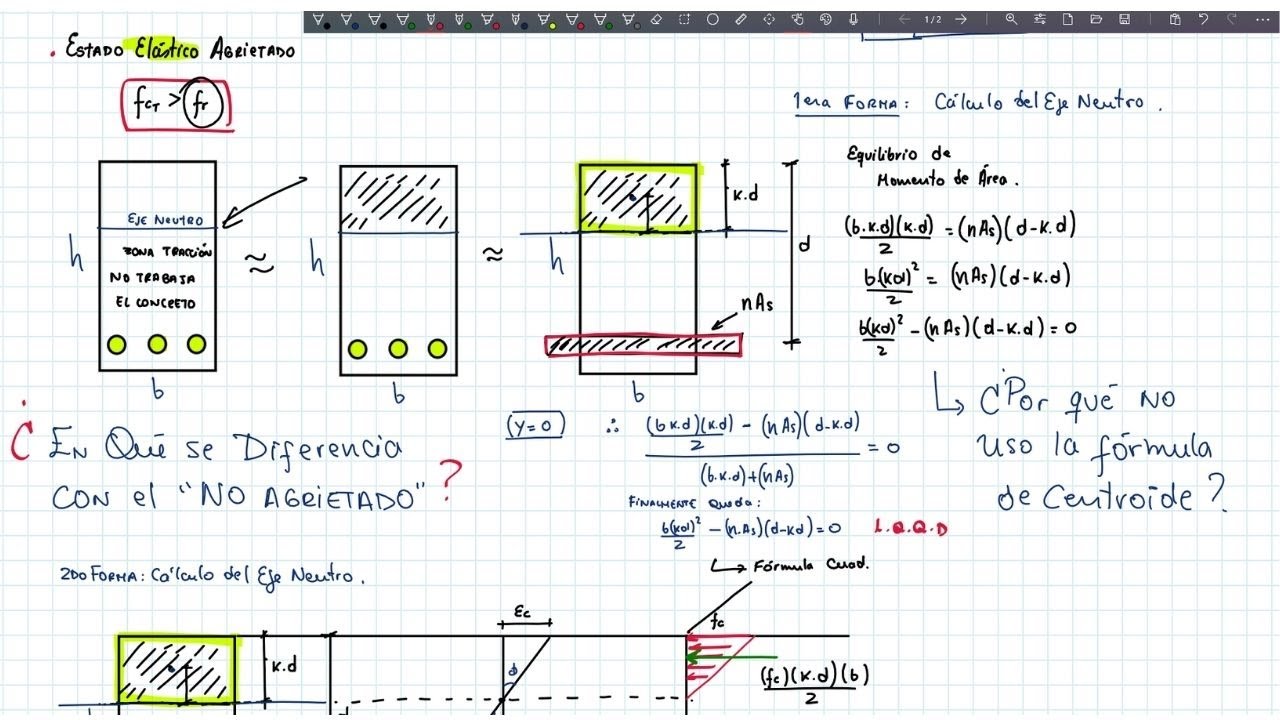 1/2
. ESTADO Elástico AGRIETADO
fcT > fr
1era FORMA: Cálculo del Eje Neutro.
Equilibrio de
Momento de Área.
EJE NEUTRO
ZONA TRACCIÓN
NO TRABAJA
EL CONCRETO
h
b
≈
h
b
≈
h
b
k.d
d
nAs
(b.k.d)(k.d)/2 = (nAs)(d-k.d)
b(kd)²/2 = (nAs)(d-k.d)
b(kd)²/2 - (nAs)(d-k.d) = 0
¿Por qué NO
uso la fórmula
de Centroide?
¿EN Qué se Diferencia
CON el "NO AGRIETADO"?
(y=0) ∴ (b.k.d)(k.d)/2 - (nAs)(d-k.d) / (b.k.d)+(nAs) = 0
FINALMENTE QUEDA:
b(kd)²/2 - (n.As)(d-kd) = 0 L.Q.Q.D
Fórmula Cuad.
2DO FORMA: Cálculo del Eje Neutro.
k.d
εc
fc
(fc)(k.d)(b)/2